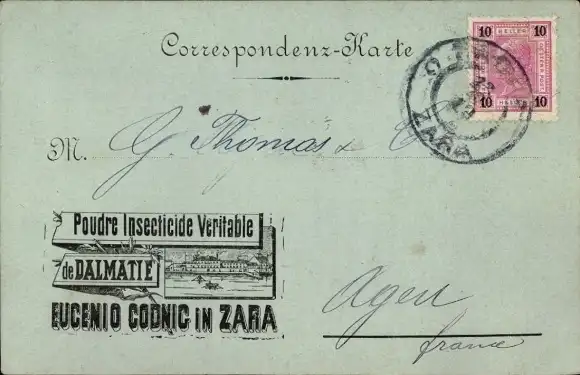 Correspondenz-Karte
10 HELLER 10
10 HELLER 10
ZARA
M. G Thomas & C
Poudre Insecticide Veritable
de DALMATIE
EUGENIO CODNIC in ZARA
Agen
france